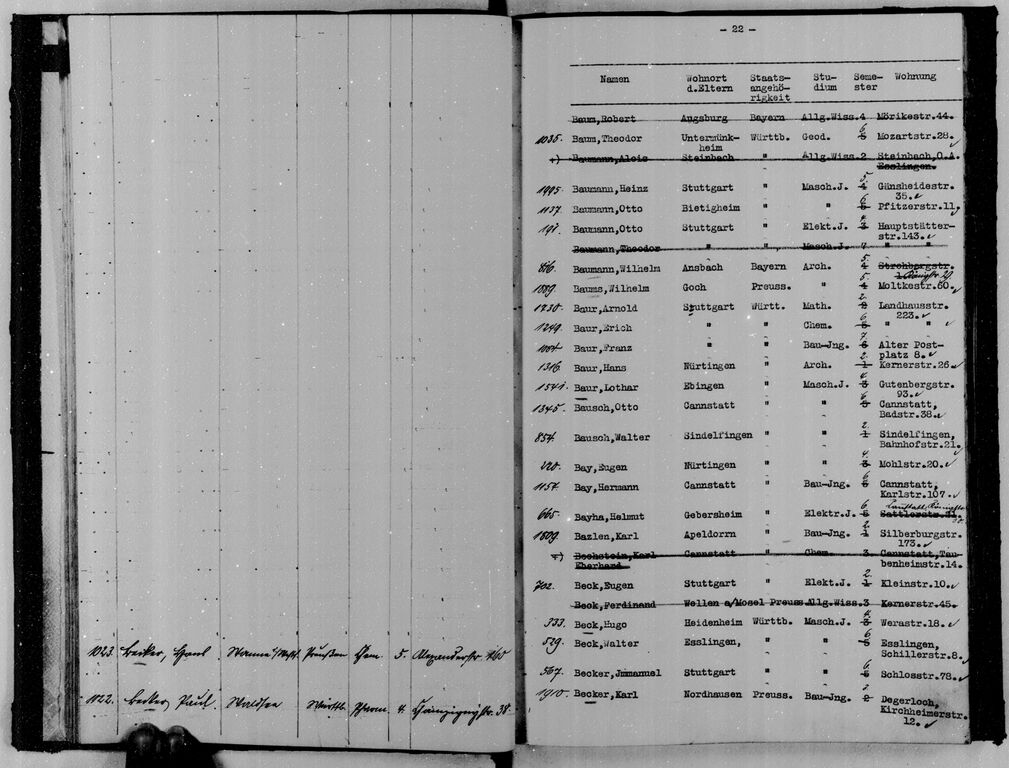 1123. Becker, Preußen 5. 165
1122. Becker, Paul Waldsee Württb. 4. 38.
- 22 -
Namen Wohnort Staats- Stu- Seme- Wohnung
d.Eltern angehö- dium ster
rigkeit
Baum,Robert Augsburg Bayern Allg.Wiss.4 Mörikestr.44.
1035. Baum,Theodor Untermünk- Württb. Geod. 5 6 Mozartstr.28.
heim
+) Baumann,Alois Steinbach " Allg.Wiss.2 Steinbach,O.A.
Esslingen.
1995. Baumann,Heinz Stuttgart " Masch.J. 4 5 Gänsheidestr.
35.
1137. Baumann,Otto Bietigheim " " 5 6 Pfitzerstr.11,
191. Baumann,Otto Stuttgart " Elekt.J. 3 4 Hauptstätter-
str.143.
Baumann,Theodor " " Masch.J. 7 " "
816. Baumann,Wilhelm Ansbach Bayern Arch. 4 5 Strohbergstr.
1
1889. Baums,Wilhelm Goch Preuss. " 4 5 Moltkestr.60.
1230. Baur,Arnold Stuttgart Württ. Math. 2 Landhausstr.
223.
1249. Baur,Erich " " Chem. 5 6 " "
1084. Baur,Franz " " Bau-Jng. 6 7 Alter Post-
platz 8.
1316. Baur,Hans Nürtingen " Arch. 1 2 Kernerstr.26.
1541. Baur,Lothar Ebingen " Masch.J. 3 4 Gutenbergstr.
93.
1345. Bausch,Otto Cannstatt " " 5 6 Cannstatt,
Badstr.38.
854. Bausch,Walter Sindelfingen " " 1 2 Sindelfingen,
Bahnhofstr.21.
220. Bay,Eugen Nürtingen " " 3 4 Mohlstr.20.
1157. Bay,Hermann Cannstatt " Bau-Jng. 5 6 Cannstatt,
Karlstr.107.
665. Bayha,Helmut Gebersheim " Elektr.J. 5 6 Sattlerstr.
1809. Bazlen,Karl Apeldorrn " Bau-Jng. 1 2 Silberburgstr.
173.
+) Bechstein,Karl Cannstatt " Chem. 3. Cannstatt,Tau-
Eberhard. benheimstr.14.
702. Beck,Eugen Stuttgart " Elekt.J. 1 2 Kleinstr.10.
Beck,Ferdinand Wellen a/Mosel Preuss.Allg.Wiss.3 Kernerstr.45.
333. Beck,Hugo Heidenheim Württb. Masch.J. 3 4 Werastr.18.
529. Beck,Walter Esslingen, " " 5 6 Esslingen,
Schillerstr.8.
567. Becker,Jmmanuel Stuttgart " " 5 6 Schlosstr.78.
1910. Becker,Karl Nordhausen Preuss. Bau-Jng. 2 3 Degerloch,
Kirchheimerstr.
12.